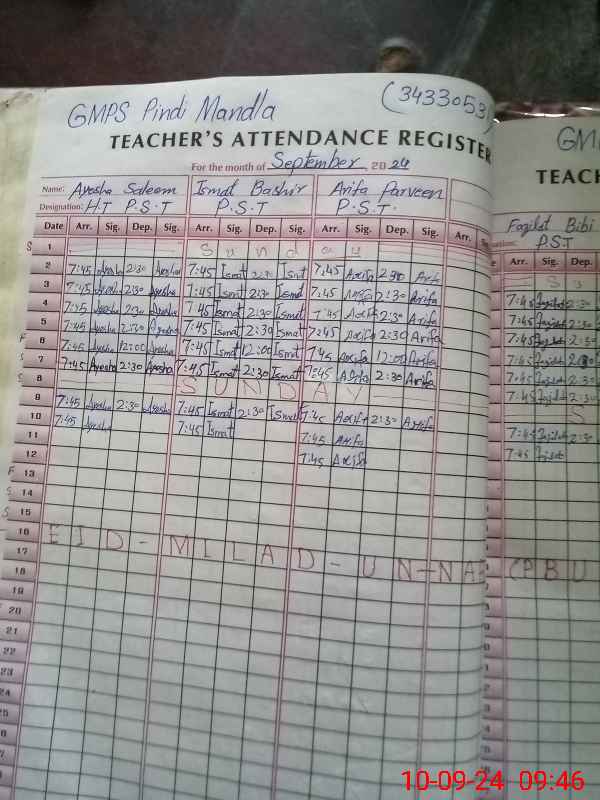 GMPS Pindi Mandla (34330531
GM
TEACHER'S ATTENDANCE REGISTER
TEACH
For the month of September 2024
Name: Ayesha Saleem Ismat Bashir Arifa Parveen
Fazilat Bibi
Designation: H.T P.S.T P.S.T P.S.T.
P.S.T
Date Arr. Sig. Dep. Sig. Arr. Sig. Dep. Sig. Arr. Sig. Dep. Sig. Arr.
Arr. Sig. Dep.
1 Sunday
2 7:45 Ayesha 2:30 Ayesha 7:45 Ismat 2:30 Ismat 7:45 Arifa 2:30 Arifa
3 7:45 Ayesha 2:30 Ayesha 7:45 Ismat 2:30 Ismat 7:45 Arifa 2:30 Arifa
4 7:45 Ayesha 2:30 Ayesha 7:45 Ismat 2:30 Ismat 7:45 Arifa 2:30 Arifa
5 7:45 Ayesha 2:30 Ayesha 7:45 Ismat 2:30 Ismat 7:45 Arifa 2:30 Arifa
6 7:45 Ayesha 12:00 Ayesha 7:45 Ismat 12:00 Ismat 7:45 Arifa 12:00 Arifa
7 7:45 Ayesha 2:30 Ayesha 7:45 Ismat 2:30 Ismat 7:45 Arifa 2:30 Arifa
8 SUNDAY
9 7:45 Ayesha 2:30 Ayesha 7:45 Ismat 2:30 Ismat 7:45 Arifa 2:30 Arifa
10 7:45 Ayesha 7:45 Ismat 7:45 Arifa
11
12 7:45 Arifa
13
14
15
16
17 EID-MILAD-UN-NA
(PBU
18
19
20
21
22
23
24
10-09-24 09:46